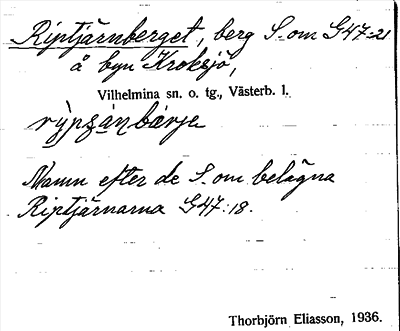 Riptjärnberget, berg S. om G47:21
å byn Kroksjö,
Vilhelmina sn. o. tg., Västerb. l.
Namn efter de S. om belägna
Riptjärnarna G47:18.
Thorbjörn Eliasson, 1936.